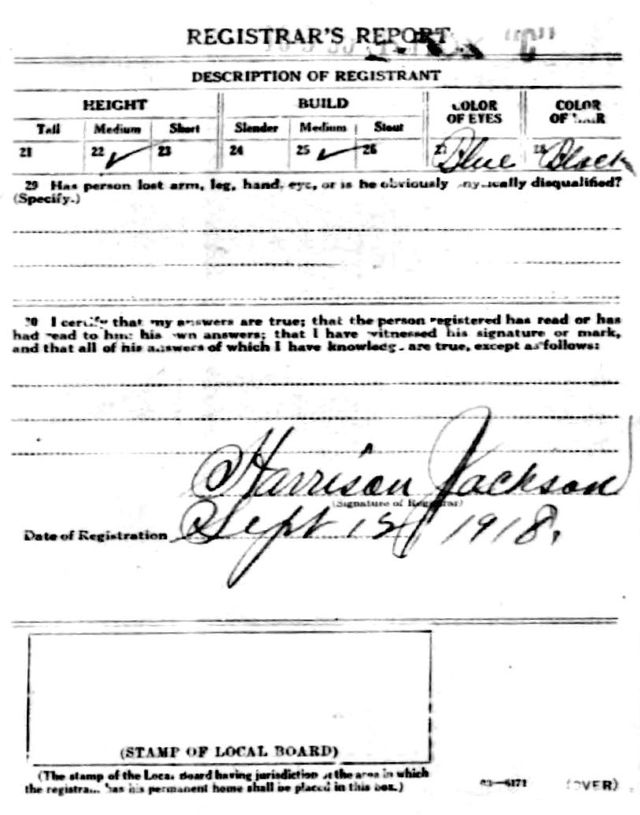 REGISTRAR'S REPORT
"C"
DESCRIPTION OF REGISTRANT
HEIGHT BUILD COLOR OF EYES COLOR OF HAIR
Tall Medium Short Slender Medium Stout
21 22 ✓ 23 24 25 ✓ 26 27 Blue 28 Black
29 Has person lost arm, leg, hand, eye, or is he obviously physically disqualified?
(Specify.)
30 I certify that my answers are true; that the person registered has read or has
had read to him his own answers; that I have witnessed his signature or mark,
and that all of his answers of which I have knowledge are true, except as follows:
Harrison Jackson
(Signature of Registrar)
Date of Registration Sept 12 1918.
(STAMP OF LOCAL BOARD)
(The stamp of the Local Board having jurisdiction of the area in which
the registrant has his permanent home shall be placed in this box.)
03—6171 (OVER)